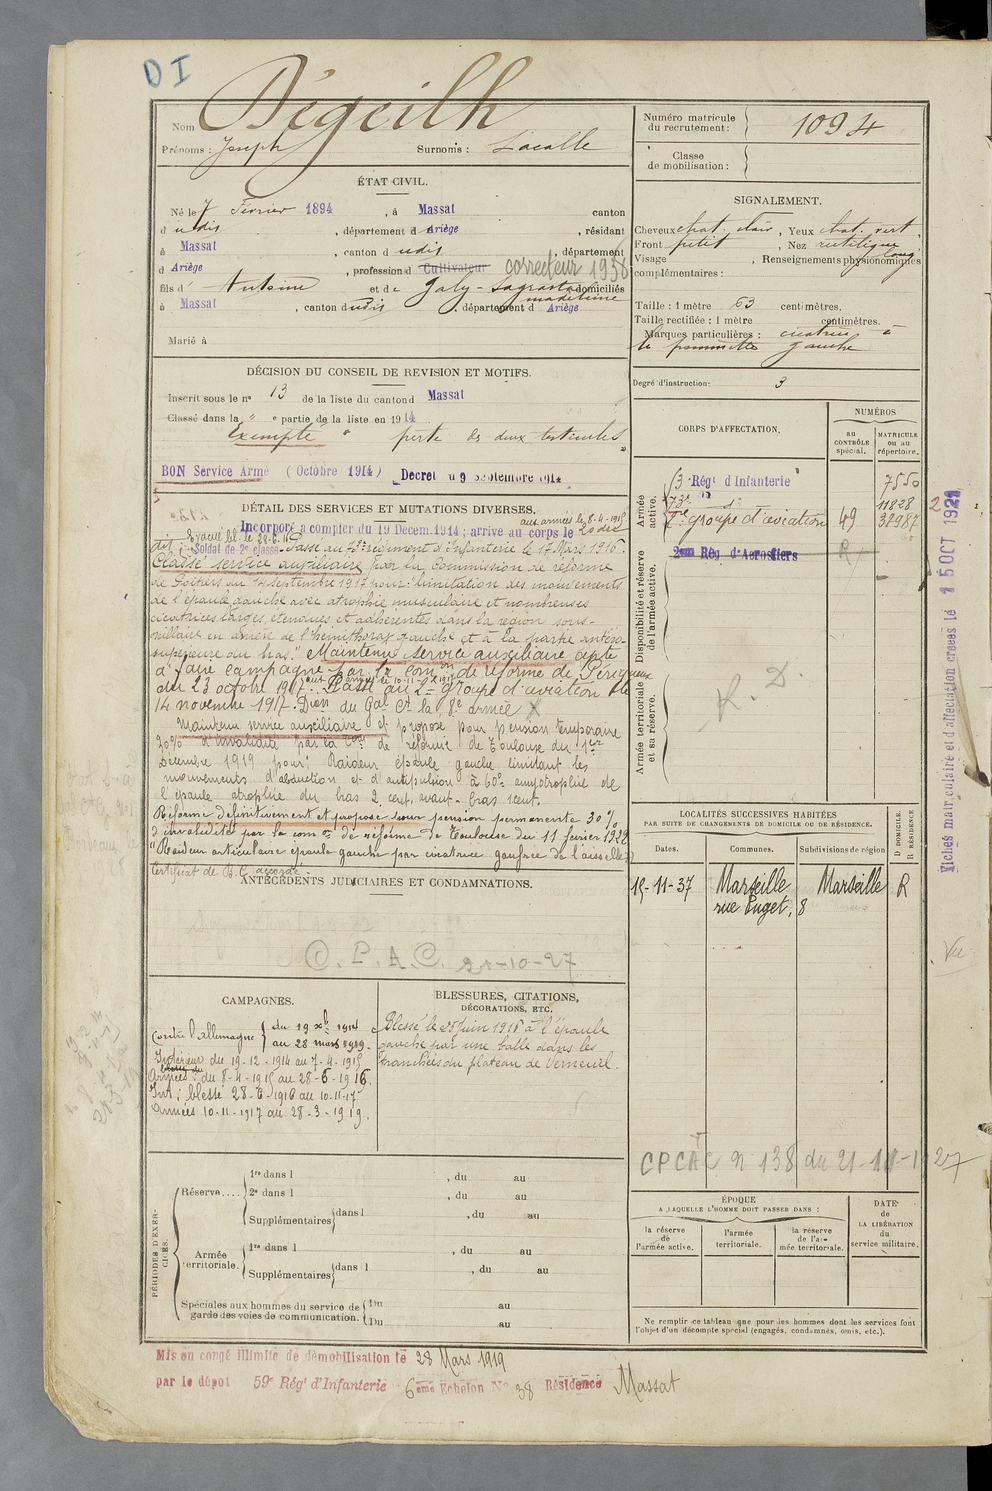 D I
Nom Dégeilh
Prénoms : Joseph Surnoms : Lacalle
Numéro matricule
du recrutement : 1094
Classe
de mobilisation :
ÉTAT CIVIL.
Né le 7 Février 1894, à Massat canton
d udis, département d Ariège, résidant
à Massat, canton d udis, département
d Ariège, profession d Cultivateur correcteur 1938
fils d' Antoine et de Galy- domiciliés
madeleine
à Massat, canton d udis, département d Ariège
Marié à
SIGNALEMENT.
Cheveux chat. clair, Yeux chat. vert,
Front petit, Nez rectiligne
Visage long, Renseignements physionomiques
complémentaires :
Taille : 1 mètre 63 centimètres.
Taille rectifiée : 1 mètre centimètres.
Marques particulières : cicatrice à
la pommette gauche
Degré d'instruction: 3
DÉCISION DU CONSEIL DE REVISION ET MOTIFS.
Inscrit sous le n° 13 de la liste du canton d Massat
Classé dans la " e partie de la liste en 1914
Exempté " perte des deux testicules "
BON Service Armé (Octobre 1914) Décret du 9 Septembre 1914
DÉTAIL DES SERVICES ET MUTATIONS DIVERSES.
aux armées le 8-4-1915
Incorporé à compter du 19 Décem. 1914 ; arrivé au corps le 20 dit
Évacué bl. le 28-6-16
dit. Soldat de 2e classe. Passé au 73e régiment d'Infanterie le 17 Mars 1916.
Classé service auxiliaire par la Commission de réforme
de Poitiers du 14 septembre 1917 pour: "limitation des mouvements
de l'épaule gauche avec atrophie musculaire et nombreuses
cicatrices larges, étendues, et adhérentes dans la région sous-
en arrière de l'hémithorax gauche et à la partie antéro-
supérieure du bras." Maintenu service auxiliaire apte
à faire campagne par la Comon de réforme de Périgueux
du 23 octobre 1917. aux armées le 10-11-1917 Passé au 2e groupe d'aviation le
14 novembre 1917. Dion du Gal Ct la 8e armée X
Maintenu service auxiliaire et proposé pour pension temporaire
30% d'invalidité par la Com de réforme de Toulouse du 1er
Décembre 1919 pour; Raideur épaule gauche limitant les
mouvements d'abduction et d'antépulsion à 60° amyotrophie de
l'épaule atrophie du bras 2 cent. avant-bras 1 cent.
Réformé définitivement et proposé pour pension permanente 30%
d'invalidité par la comon de réforme de Toulouse du 11 février 1922
"Raideur articulaire épaule gauche par cicatrice gaufrée de l'aisselle"
Certificat de B. C accordé
CORPS D'AFFECTATION.
NUMÉROS
AU CONTRÔLE spécial.
MATRICULE ou au répertoire.
Armée active.
Régt d'Infanterie 7550
73e do 11828
2e groupe d'aviation 49 38987
Disponibilité et réserve de l'armée active.
2me Rég d'Aerostiers R
Armée territoriale et sa réserve.
R. D.
Fiches matriculaire et d'affectation créées le 15 OCT 1921
LOCALITÉS SUCCESSIVES HABITÉES
PAR SUITE DE CHANGEMENTS DE DOMICILE OU DE RÉSIDENCE.
Dates. Communes. Subdivisions de région D DOMICILE. R RÉSIDENCE
15-11-37 Marseille Marseille R
rue Puget, 8
Vu
ANTÉCÉDENTS JUDICIAIRES ET CONDAMNATIONS.
C. P. A. C. 21-10-27
CAMPAGNES.
Contre l'allemagne du 19 Xb 1914
au 28 mars 1919.
Intérieur du 19-12-1914 au 7-4-1915
Armées : du 8-4-1915 au 28-6-1916.
Int. ; blessé 28-6-1916 au 10-11-17
Armées 10-11-1917 au 28-3-1919.
BLESSURES, CITATIONS,
DÉCORATIONS, ETC.
Blessé le 25 Juin 1916 à l'épaule
gauche par une balle dans les
tranchées du plateau de Verneuil.
CPCAC n 138 du 21-10-1927
PÉRIODES D'EXERCICES.
Réserve....
1re dans l , du au
2e dans l , du au
Supplémentaires dans l , du au
Armée territoriale.
1re dans l , du au
Supplémentaires dans l , du au
Spéciales aux hommes du service de
garde des voies de communication.
Du au
Du au
ÉPOQUE
A LAQUELLE L'HOMME DOIT PASSER DANS :
la réserve de l'armée active.
l'armée territoriale.
la réserve de l'armée territoriale.
DATE de LA LIBÉRATION du service militaire.
Ne remplir ce tableau que pour les hommes dont les services font
l'objet d'un décompte spécial (engagés, condamnés, omis, etc.).
Mis en congé illimité de démobilisation le 28 Mars 1919
par le dépôt 59e Régt d'Infanterie 6ème Echelon N° 38 Résidence Massat